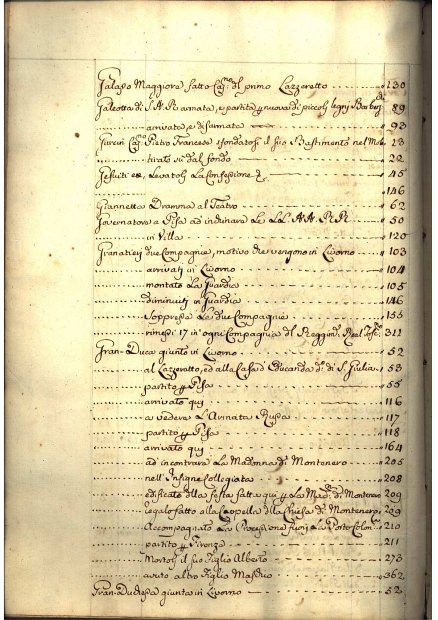 Galasso Maggiore fatto Cap.no del primo Lazzeretto 230
Galeotta di S. A. R. armata, e partita nuova di piccoli legni 89
arrivata e disarmata 93
Pietro Francese sfondatosi il suo Bastimento nel Molo 23
tirato su dal fondo 22
Gesuiti levatoli La Confessione 45
146
Giannetta Dramma al Teatro 62
Governatore a Pisa ad inchinare Le LL. AA. RR. 50
in Villa 120
Granatieri due Compagnie, motivo che vengono in Livorno 103
arrivati in Livorno 104
montato La Guardia 105
diminuiti in Guardia 146
Soppresse Le due Compagnie 155
rimessi 17 in ogni Compagnia del Reggim. Real Tosc. 311
Gran-Duca giunto in Livorno 52
al Lazzeretto, ed alla Casa d'Educanda di S. Giulia 53
partito p Pisa 55
arrivato qui 116
a vedere L'Armata Russa 117
partito p Pisa 118
arrivato qui 164
ad incontrare La Madonna di Montenero 205
nell'Insigne Collegiata 208
edificato della festa fatta qui p La Mad.a di Montenero 209
regalo fatto alla Cappella della Chiesa di Montenero 209
Accompagnato La Processione fuori La Porta Colon. 210
partito p Firenze 211
Mortoli il suo Figlio Alberto 273
avuto altro Figlio Maschio 362
Gran-Duchessa giunta in Livorno 52